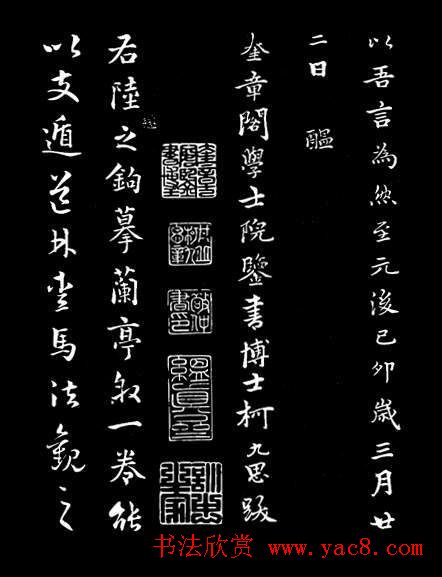 以吾言為然至元後己卯歲三月廿
二日
奎章閣學士院鑒書博士柯九思跋
右陸之鉤摹蘭亭敘一卷能
以支遁道林愛馬法觀之
书法欣赏 www.yac8.com